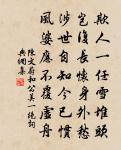 欺人一任雪堆頭
復長懷身外愁
涉世自知今已慣
風婆應不覆虛舟
陳文蔚和公美一絕詞
集